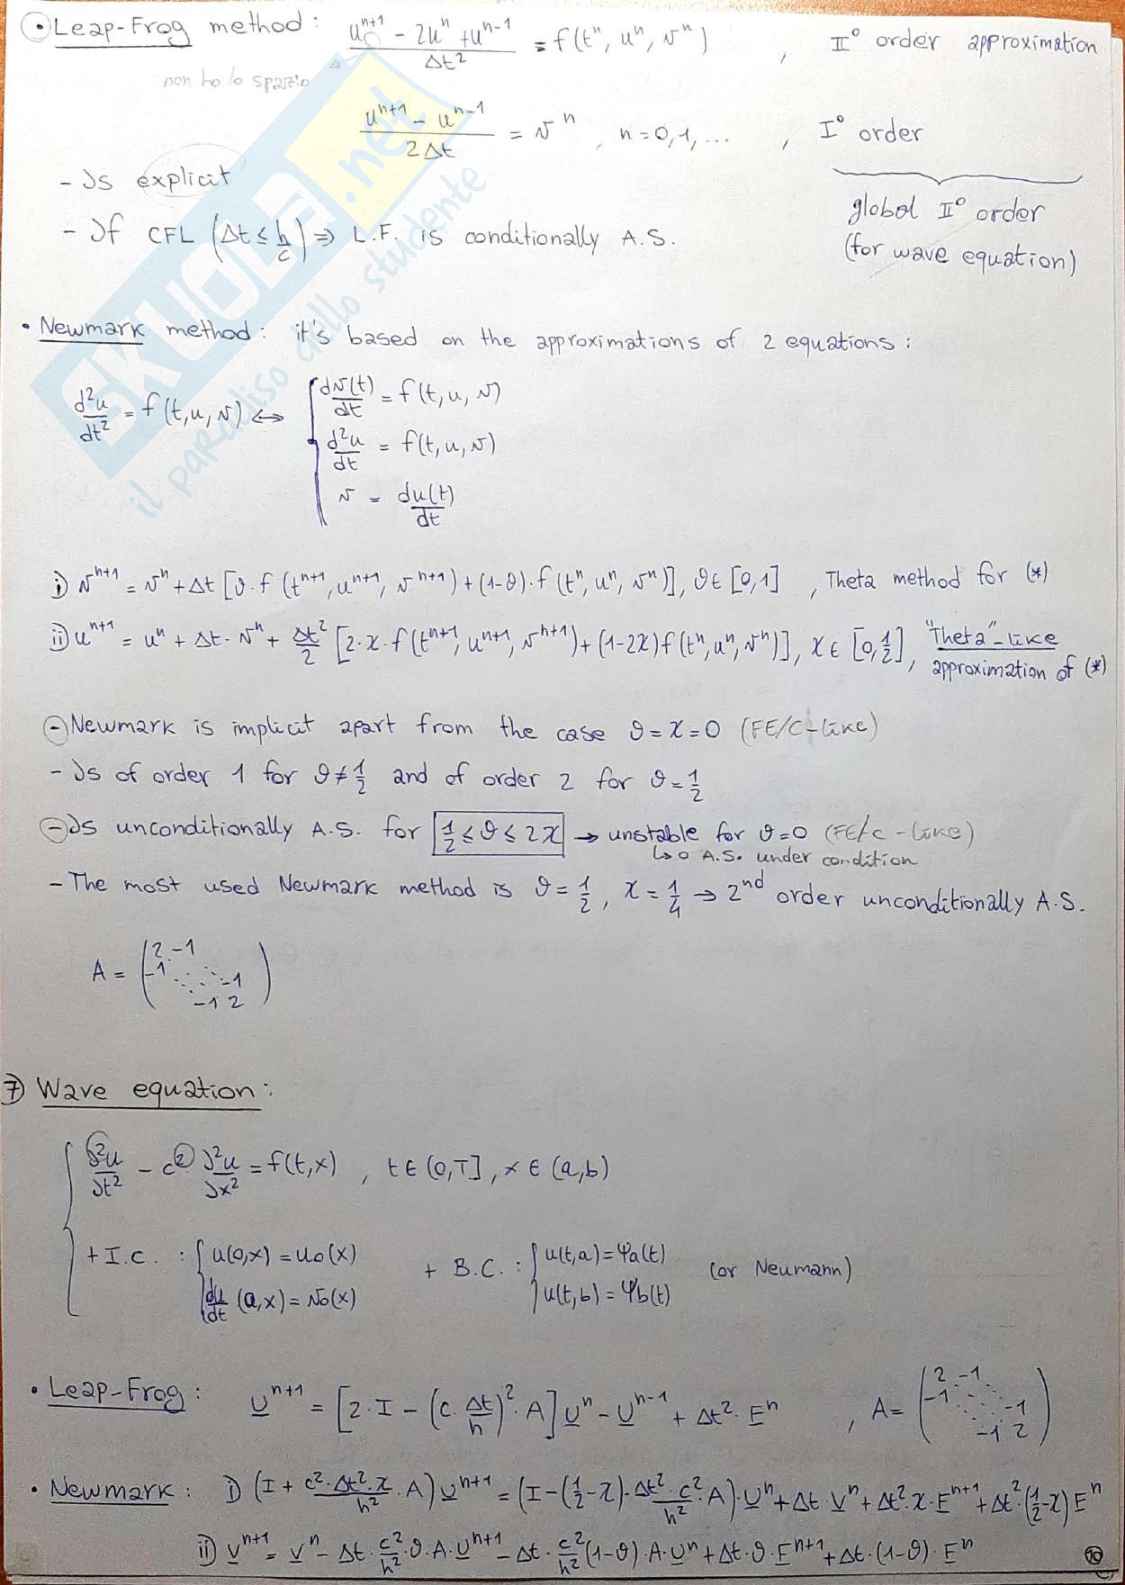 • Leap-Frog method: (u^{n+1} - 2u^n + u^{n-1})/Δt² = f(t^n, u^n, v^n) , II° order approximation
non ho lo spazio
(u^{n+1} - u^{n-1})/(2Δt) = v^n , n=0,1,... , I° order
- Is explicit
global II° order
- If CFL (Δt ≤ h/c) ⇒ L.F. is conditionally A.S.
(for wave equation)
SKUOLA.net
il paradiso dello studente
• Newmark method: it's based on the approximations of 2 equations:
d²u/dt² = f(t,u,v) ⟺ { dv(t)/dt = f(t,u,v)
d²u/dt = f(t,u,v)
v = du(t)/dt
i) v^{n+1} = v^n + Δt [ϑ·f(t^{n+1}, u^{n+1}, v^{n+1}) + (1-ϑ)·f(t^n, u^n, v^n)], ϑ∈[0,1] , Theta method for (*)
ii) u^{n+1} = u^n + Δt·v^n + Δt²/2 [2·χ·f(t^{n+1}, u^{n+1}, v^{n+1}) + (1-2χ)f(t^n, u^n, v^n)], χ∈[0,1/2], "Theta"-like
approximation of (*)
- Newmark is implicit apart from the case ϑ=χ=0 (FE/C-like)
- Is of order 1 for ϑ≠1/2 and of order 2 for ϑ=1/2
- Is unconditionally A.S. for 1/2 ≤ ϑ ≤ 2χ → unstable for ϑ=0 (FE/C-like)
↳ o A.S. under condition
- The most used Newmark method is ϑ=1/2, χ=1/4 → 2nd order unconditionally A.S.
A = (2 -1
-1 ⋱ -1
-1 2)
7) Wave equation:
{ ∂²u/∂t² - c² ∂²u/∂x² = f(t,x) , t∈(0,T], x∈(a,b)
+ I.C. : { u(0,x) = u0(x) + B.C. : { u(t,a) = φa(t) (or Neumann)
du/dt (a,x) = v0(x) u(t,b) = φb(t)
• Leap-Frog: U^{n+1} = [2·I - (c·Δt/h)²·A] U^n - U^{n-1} + Δt²·F^n , A = (2 -1
-1 ⋱ -1
-1 2)
• Newmark: i) (I + c²·Δt²·χ/h² · A) U^{n+1} = (I - (1/2-χ)·Δt²·c²/h²·A)·U^n + Δt·V^n + Δt²·χ·F^{n+1} + Δt²·(1/2-χ) F^n
ii) V^{n+1} = V^n - Δt·c²/h²·ϑ·A·U^{n+1} - Δt·c²/h²(1-ϑ)·A·U^n + Δt·ϑ·F^{n+1} + Δt·(1-ϑ)·F^n
10